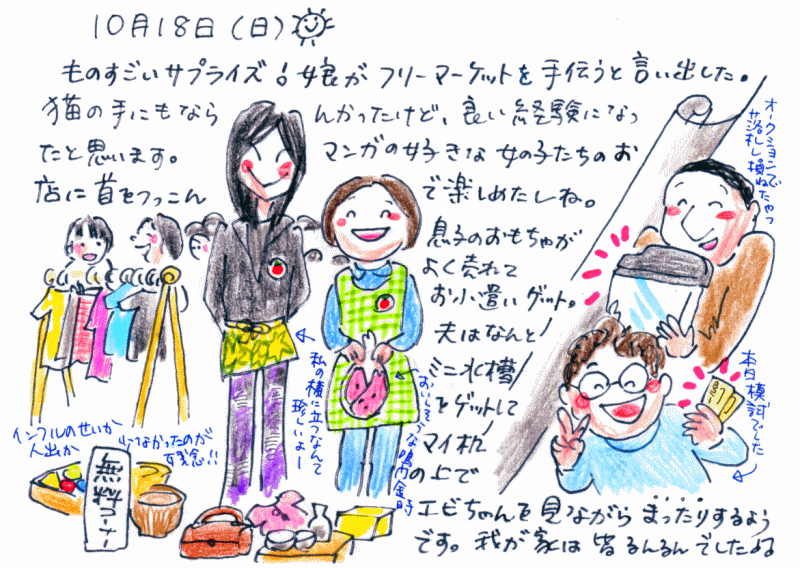 10月18日(日)
ものすごいサプライズ!娘がフリーマーケットを手伝うと言い出した。
猫の手にもならんかったけど、良い経験になっ
たと思います。マンガの好きな女の子たちのお
店に首をつっこんで楽しめたしね。
息子のおもちゃが
よく売れて
お小遣いゲット。
夫はなんと
ミニ水槽
をゲットして
マイ机
の上で
エビちゃんを見ながらまったりするよう
です。我が家は皆るんるんでしたよ
オークションで
落札し損ねたやつ
本日模試でした
私の横に立つなんて
珍しいよー
おいしそうな鳴門金時
インフルのせいか
人出が
少なかったのが
残念!!
無料コーナー